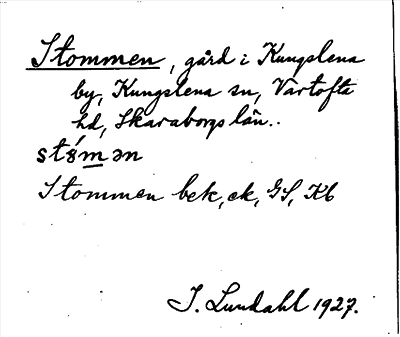 Stommen, gård i Kungslena
by, Kungslena sn, Vartofta
hd, Skaraborgs län.
Stommen bek, ek, GS, Kb
I. Lundahl 1927.